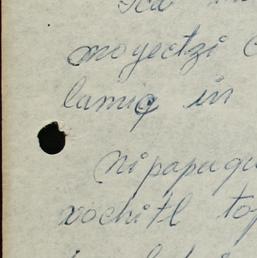 moyectzi
lamiq in
nipapaqu
xochitl to